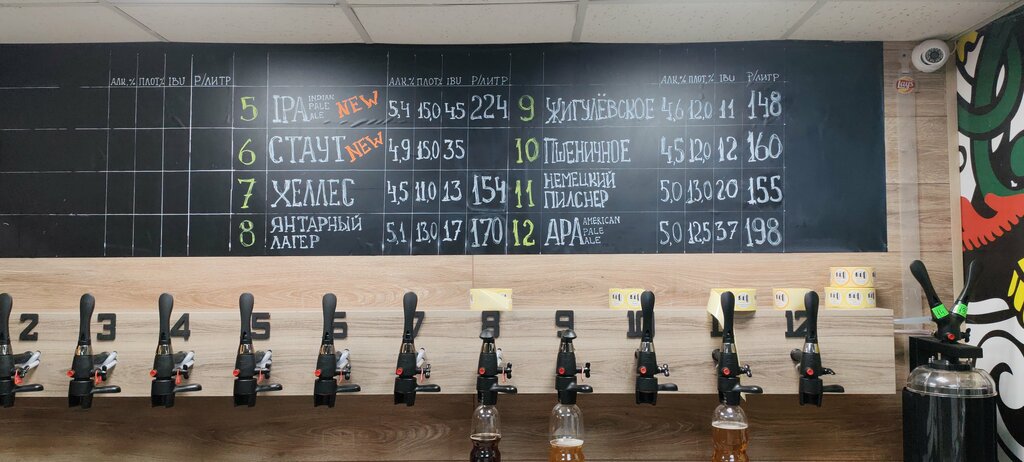 АЛК.% ПЛОТ.% IBU Р/ЛИТР
АЛК.% ПЛОТ.% IBU Р/ЛИТР
АЛК.% ПЛОТ.% IBU Р/ЛИТР
5 IPA INDIAN PALE ALE NEW 5,4 15,0 45 224
6 СТАУТ NEW 4,9 15,0 35
7 ХЕЛЛЕС 4,5 11,0 13 154
8 ЯНТАРНЫЙ
ЛАГЕР 5,1 13,0 17 170
9 ЖИГУЛЁВСКОЕ 4,6 12,0 11 148
10 ПШЕНИЧНОЕ 4,5 12,0 12 160
11 НЕМЕЦКИЙ
ПИЛСНЕР 5,0 13,0 20 155
12 APA AMERICAN PALE ALE 5,0 12,5 37 198
Lay's
2 3 4 5 6 7 8 9 10 11 12